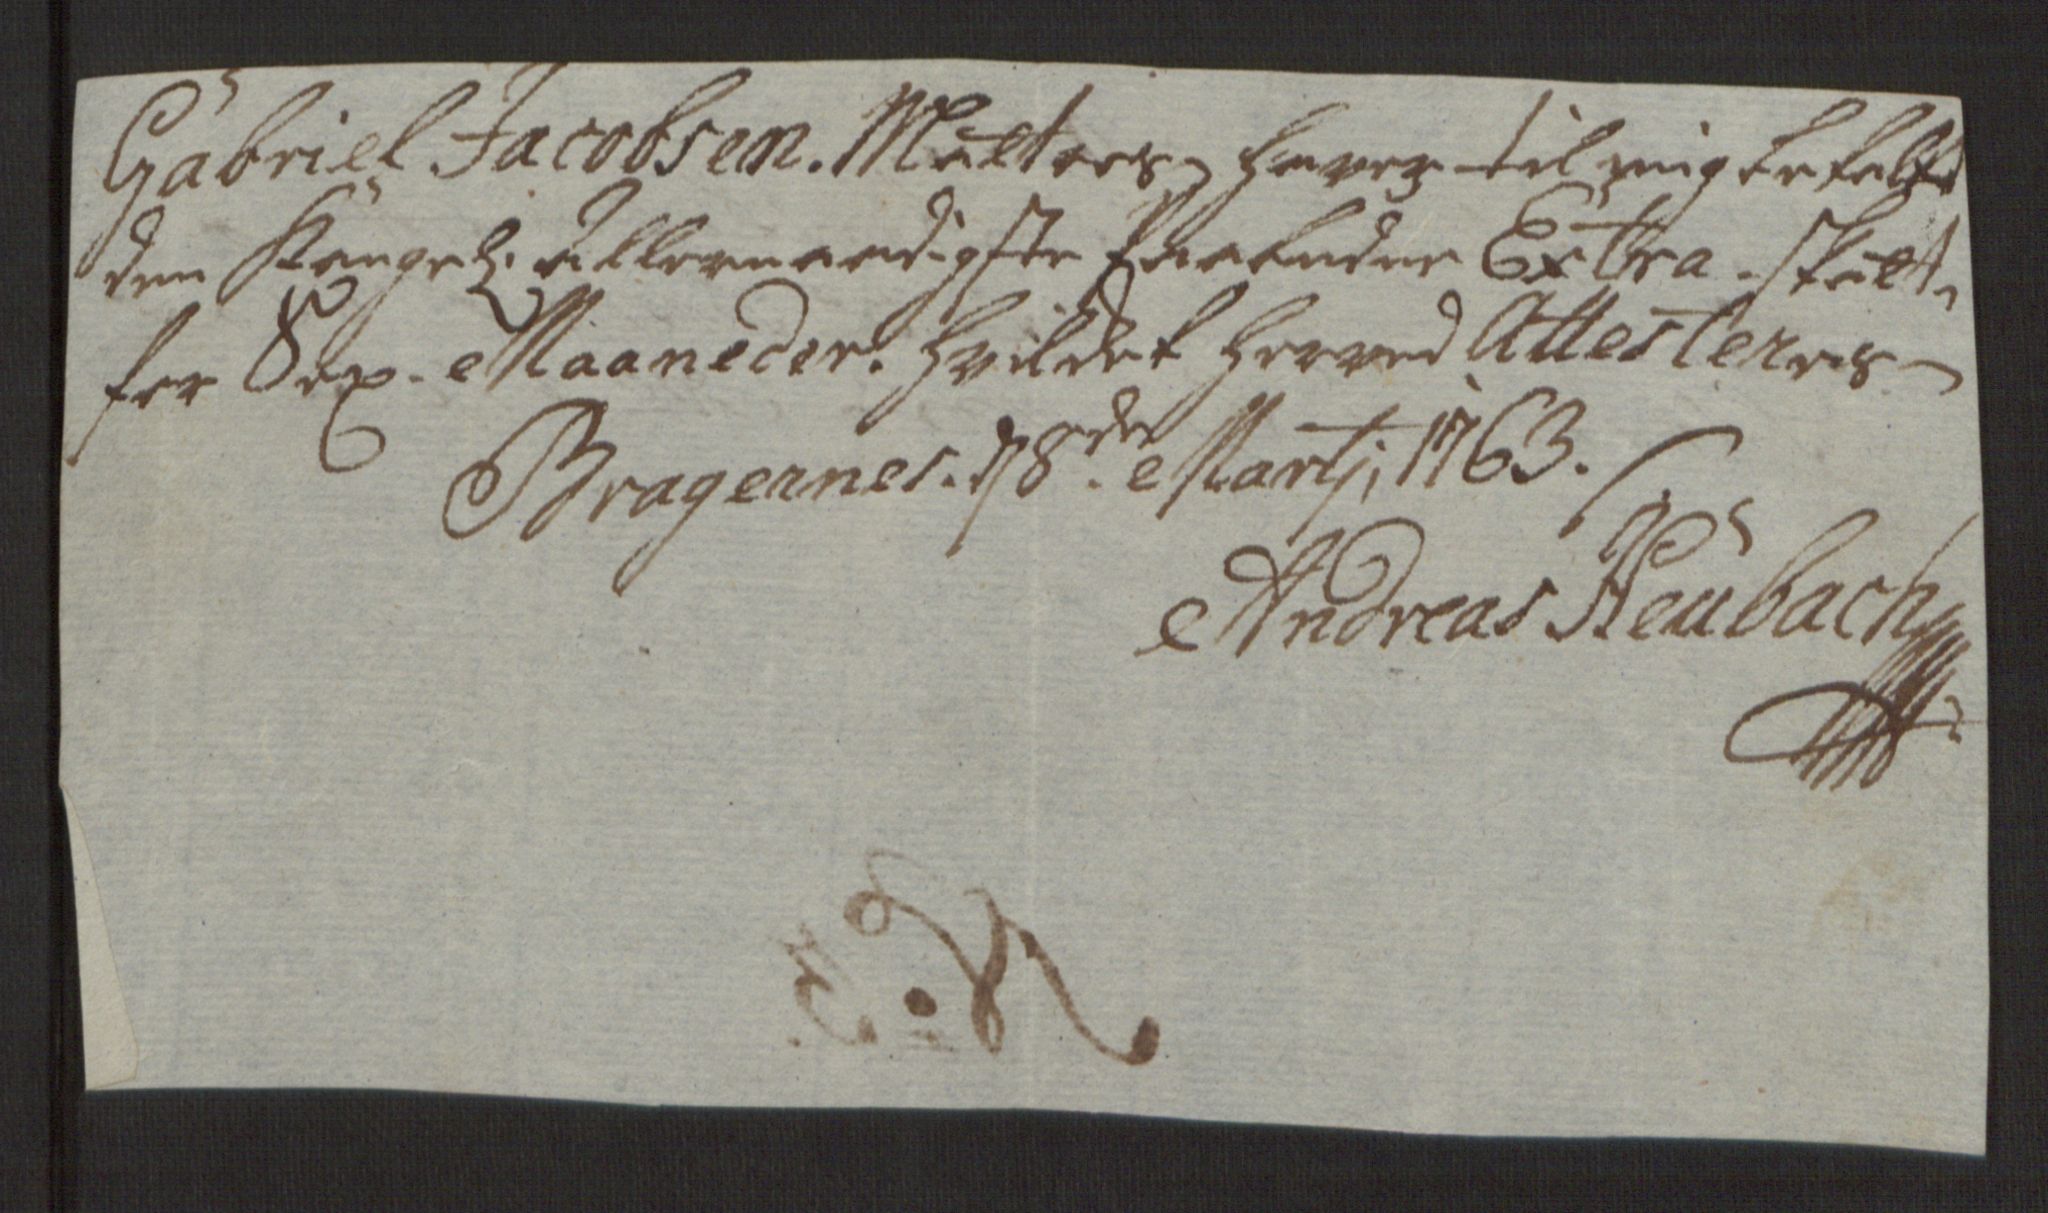 Gabriel Jacobsen. haver til mig betalt
den Kongel: allernaadigste paabudne Extra. Skatt,
for Sex. Maaneder. hvilket herved Attesteres
Bragernes. d/8de. Martj, 1763.
Andreas Heübach
No. 5.